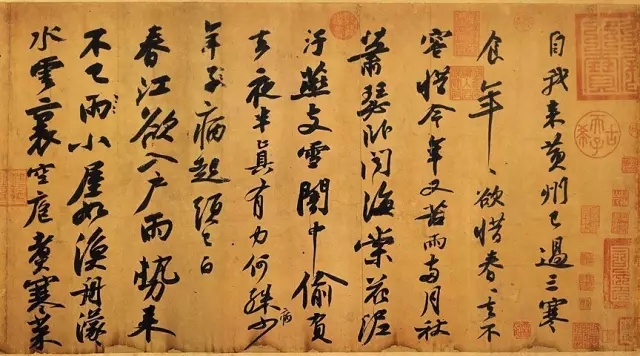 自我来黄州已過三寒
食年〻欲惜春〻去不
容惜今年又苦雨兩月秋
蕭瑟卧聞海棠花泥
汙燕支雪闇中偷負
去夜半真有力何殊少
病
年子病起頭已白
春江欲入户雨勢来
不已雨小屋如漁舟濛
水雲裏空庖煮寒菜
古希天子